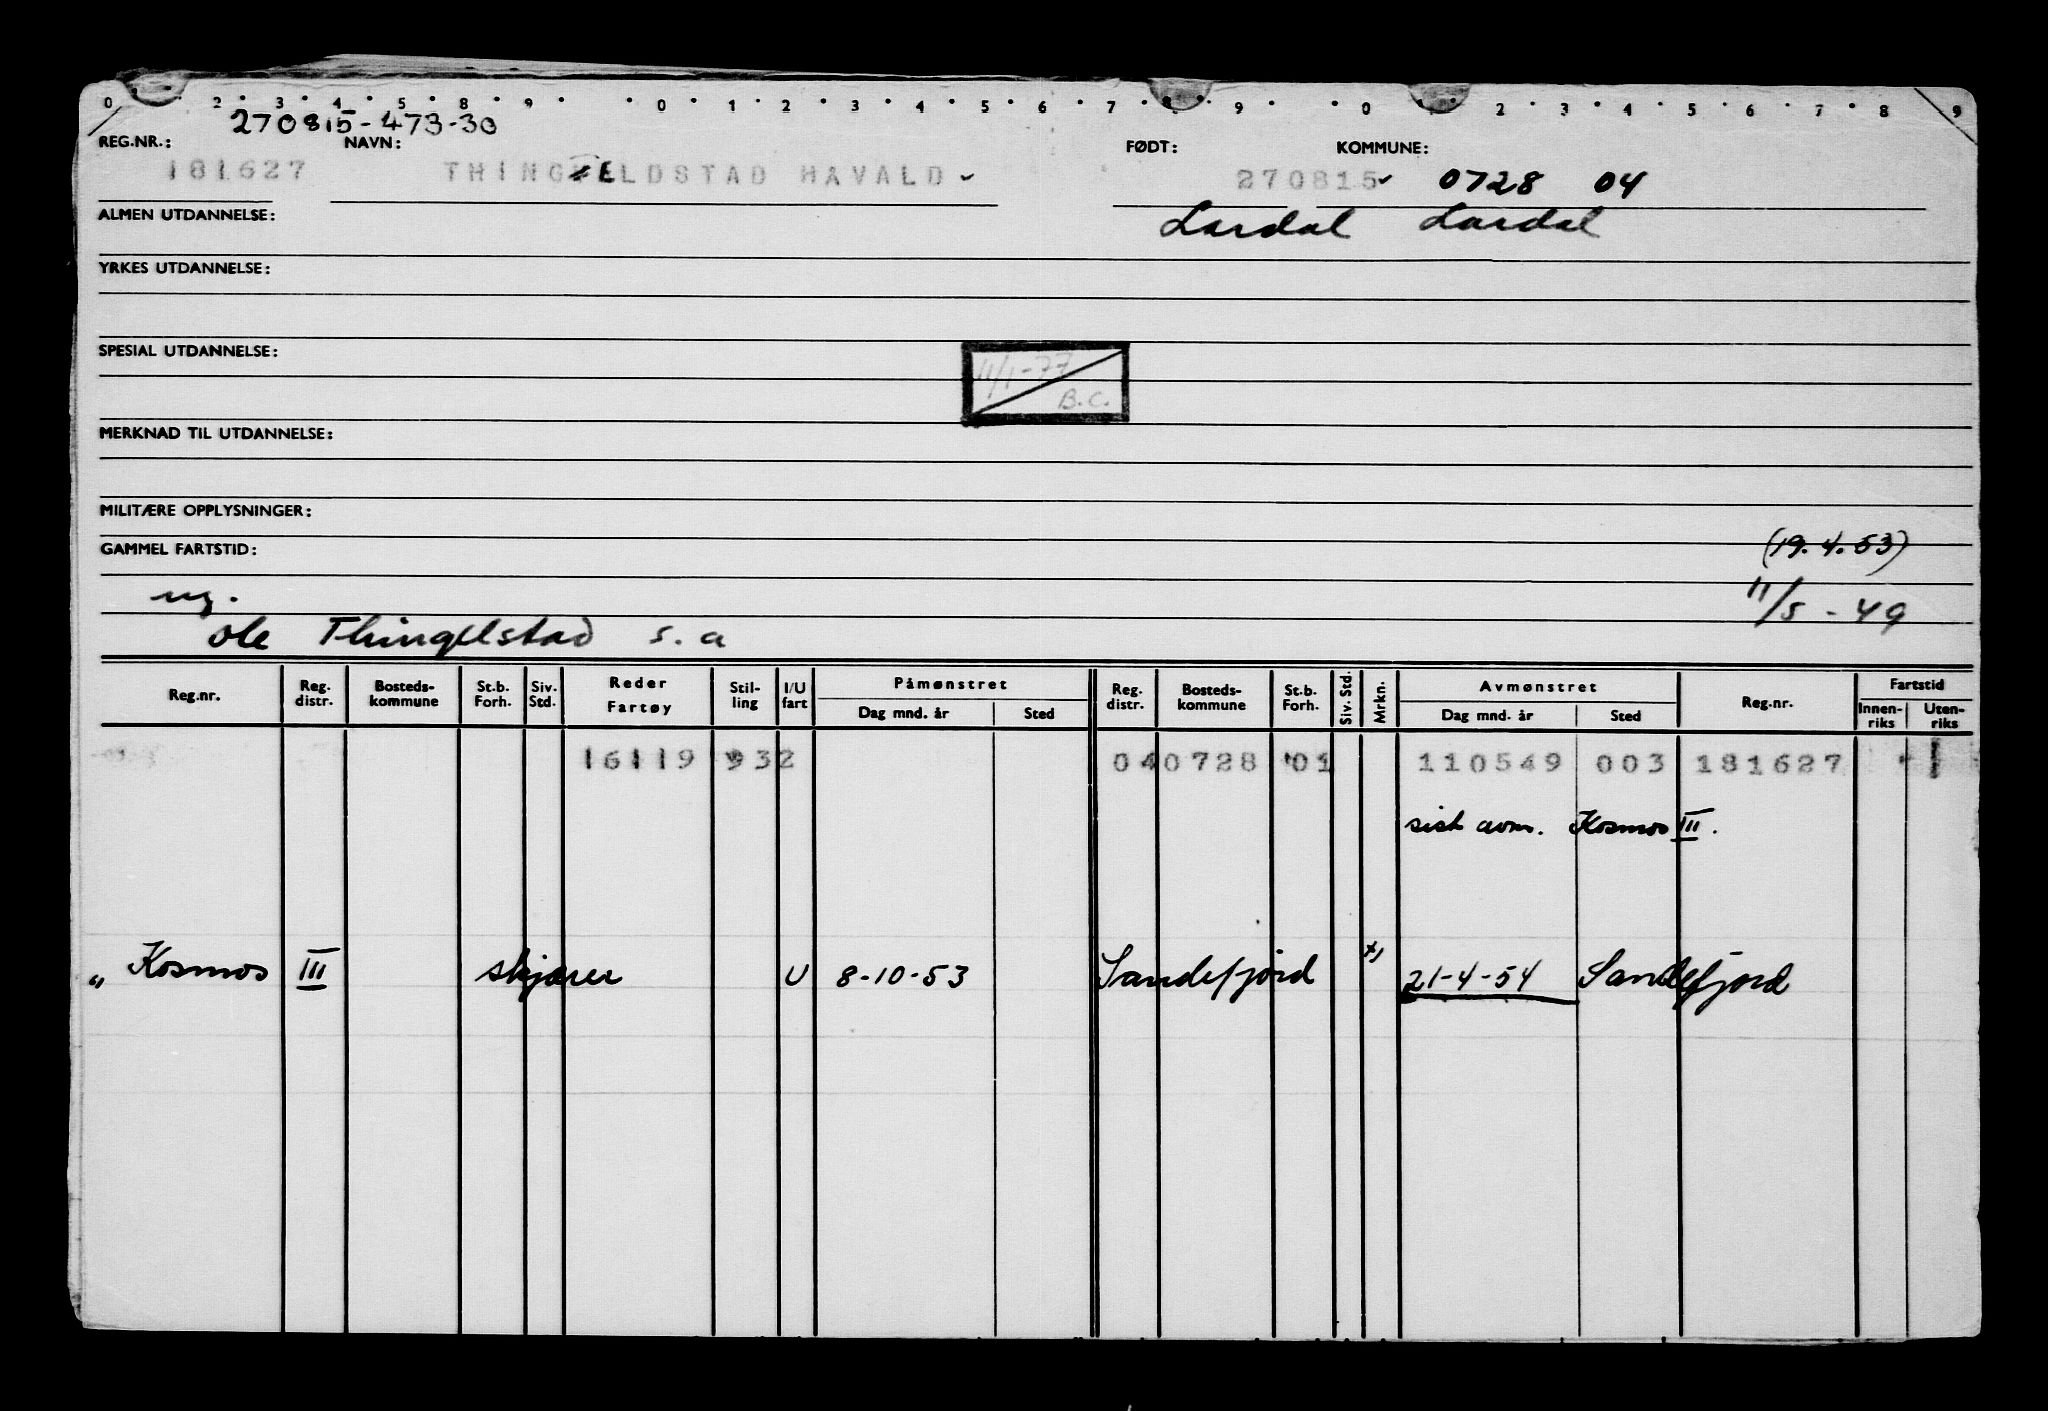 0 2 3 4 5 8 9 0 1 2 3 4 5 6 7 8 9 0 1 2 3 4 5 6 7 8 9
270815-473-30
REG.NR.: NAVN: FØDT: KOMMUNE:
181627 THINGELDSTAD HAVALD 270815 0728 04
ALMEN UTDANNELSE: Lardal Lardal
YRKES UTDANNELSE:
SPESIAL UTDANNELSE:
11/1-77
B.C.
MERKNAD TIL UTDANNELSE:
MILITÆRE OPPLYSNINGER:
GAMMEL FARTSTID: (19.4.53)
ug. 11/5-49
Ole Thingelstad s.a
Reg.nr. Reg. distr. Bosteds-kommune St.b. Forh. Siv. Std. Reder Fartøy Stil-ling I/U fart Påmønstret Dag mnd. år Sted Reg. distr. Bosteds-kommune St.b. Forh. Siv. Std. Mrkn. Avmønstret Dag mnd. år Sted Reg.nr. Fartstid Innen-riks Uten-riks
16119 932 040728 01 110549 003 181627 1
sist avm. Kosmos III.
" Kosmos III skjærer U 8-10-53 Sandefjord x) 21-4-54 Sandefjord